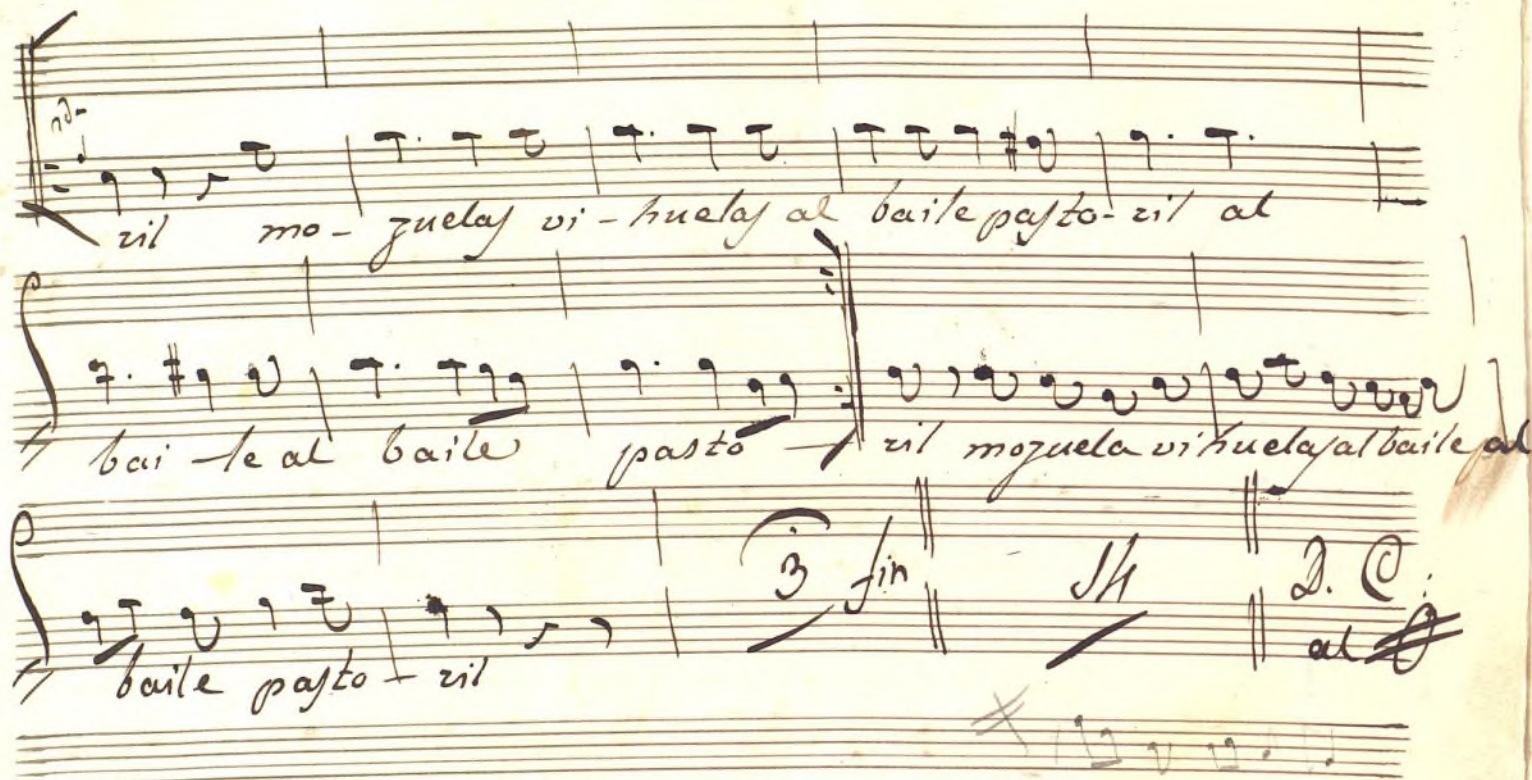 ril mo- zuelas vi-huelas al baile pasto-ril al
bai-le al baile pasto- ril mozuela vihuelas al baile al
3 fin
D. C.
al
baile pasto-ril